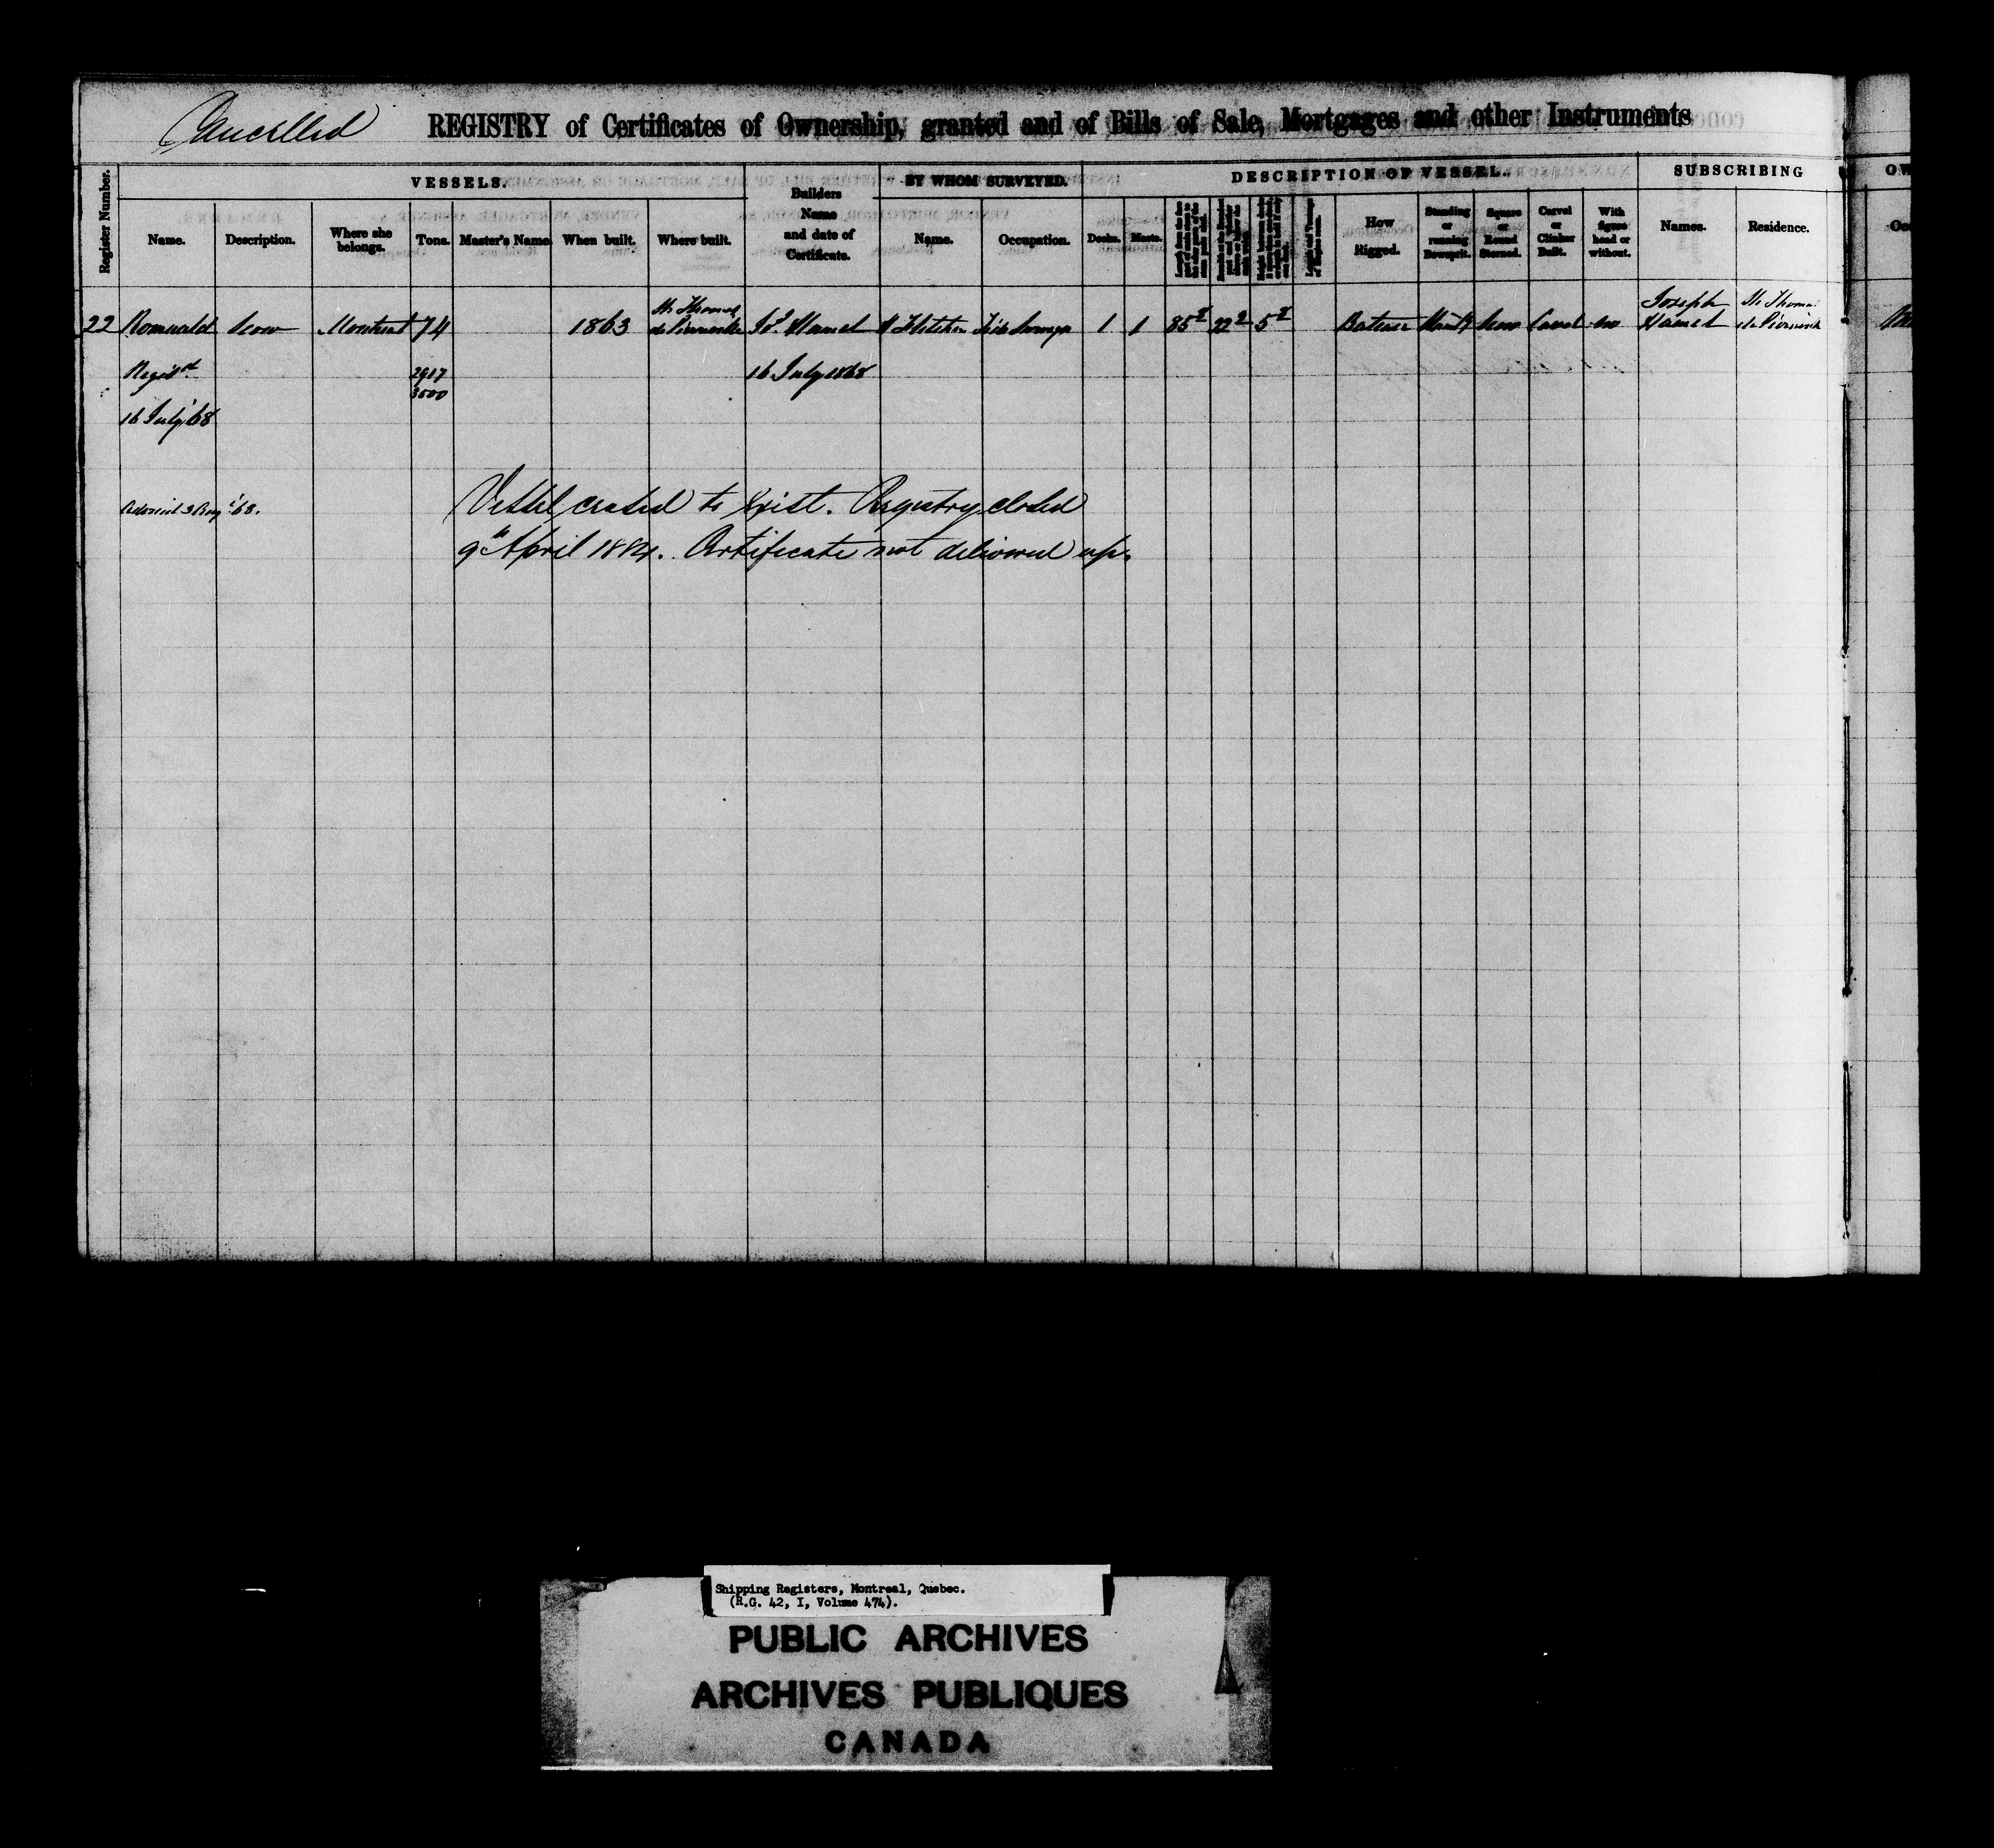 Cancelled
REGISTRY of Certificates of Ownership, granted and of Bills of Sale, Mortgages and other Instruments
Register Number.
VESSELS.
Builders Name and date of Certificate.
BY WHOM SURVEYED.
DESCRIPTION OF VESSEL.
SUBSCRIBING
OW
Name. Description. Where she belongs. Tons. Master's Name. When built. Where built.
Name. Occupation.
Decks. Masts.
How Rigged.
Standing or running Bowsprit.
Square or Round Sterned.
Carvel or Clinker Built.
With figure head or without.
Names. Residence.
22 Romuald Scow Montreal 74 1863 St. Thomas de Pierreville Jos. Hamel Fletcher 1 1 85 22 5 Bateau Scow Carvel no Joseph Hamel St. Thomas de Pierreville
Regist'd 2917 16 July 1868
3500
16 July '68
Vessel ceased to exist. Registry closed
9th April 1884. Certificate not delivered up.
Shipping Registers, Montreal, Quebec.
(R.G. 42, I, Volume 474).
PUBLIC ARCHIVES
ARCHIVES PUBLIQUES
CANADA